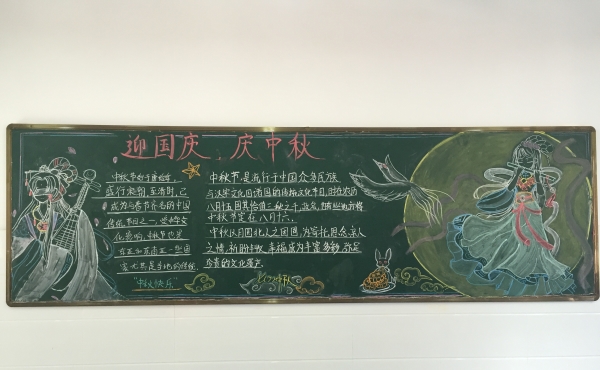 迎国庆,庆中秋
中秋节始于唐初年,
盛行宋朝,至清时,已
成为与春节齐名的中国
传统节日之一,受中华文
化影响,中秋节也是
东亚和东南亚一些国
家尤其是当地的传统
"中秋快乐"
中秋节,是流行于中国众多民族
与汉字文化圈诸国的传统文化节日,时在农历
八月十五因其恰值三秋之半,故名,也有些地方将
中秋节定在八月十六.
中秋以月圆兆人之团圆,为寄托思念亲人
之情,祈盼丰收、幸福,成为丰富多彩,弥足
珍贵的文化遗产